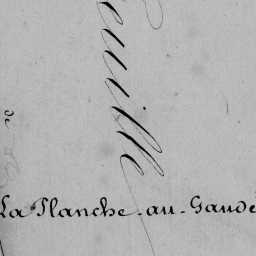 euille
de
La Planche-au-Gaude